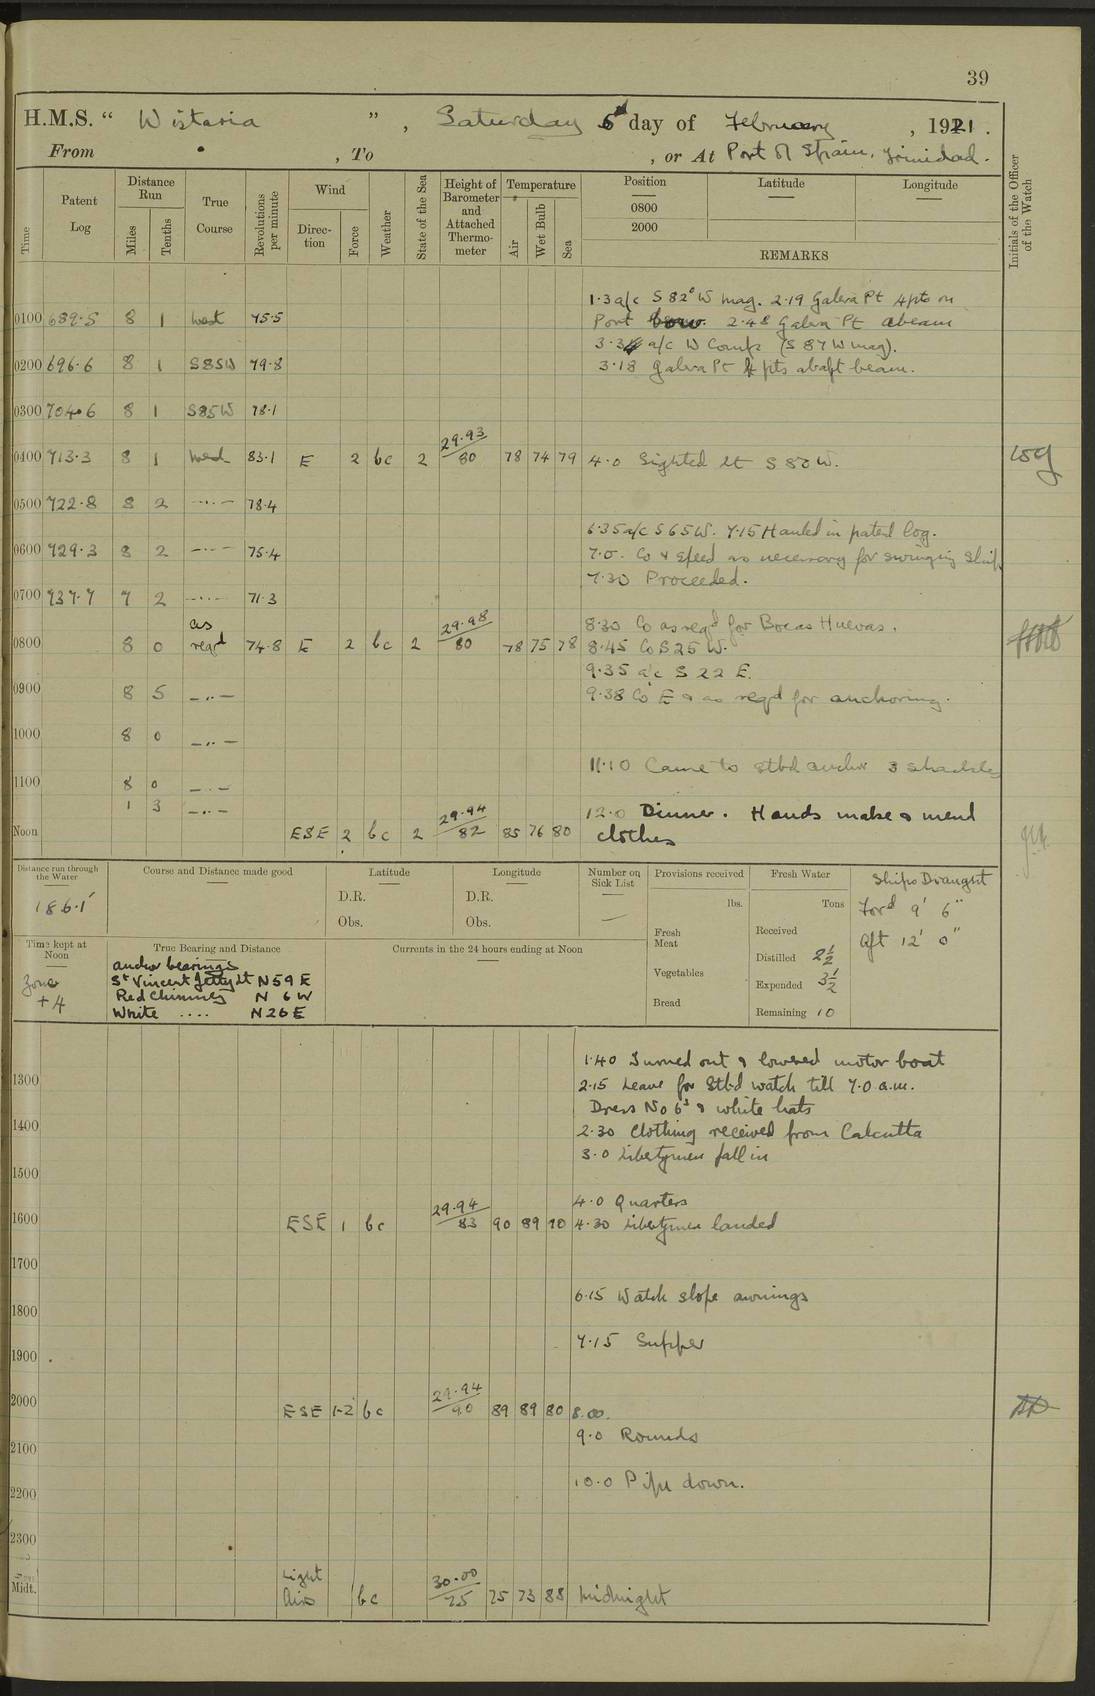 39
H.M.S. “ Wistaria ” , Saturday 5th day of February , 1921 .
From , To , or At Port of Spain, Trinidad.
Time
Patent Log
Distance Run
Miles
Tenths
True Course
Revolutions per minute
Wind
Direc- tion
Force
Weather
State of the Sea
Height of Barometer and Attached Thermo- meter
Temperature
Air
Wet Bulb
Sea
Position
0800
2000
Latitude
Longitude
REMARKS
Initials of the Officer of the Watch
1.3 a/c S 82° W mag. 2.19 Galera Pt 4 pts on
0100 689.5 8 1 West 75.5 Port bow. 2.48 Galera Pt abeam
3.3 a/c W Comp (S 87 W mag).
0200 696.6 8 1 S85W 79.8 3.18 Galera Pt 4 pts abaft beam.
0300 704.6 8 1 S85W 78.1
0400 713.3 8 1 West 83.1 E 2 bc 2 29.93/80 78 74 79 4.0 Sighted Lt S 80 W.
0500 722.8 8 2 —..— 78.4
6.35 a/c S 65 W. 7.15 Hauled in patent log.
0600 729.3 8 2 —..— 75.4 7.0. Co & speed as necessary for swinging ship
7.30 Proceeded.
0700 737.7 7 2 —..— 71.3
8.30 Co as reqd for Bocas Huevas.
0800 8 0 as reqd 74.8 E 2 bc 2 29.98/80 78 75 78 8.45 Co S 25 W.
9.35 a/c S 22 E.
0900 8 5 —..— 9.38 Co E & as reqd for anchoring.
1000 8 0 —..—
11.10 Came to stbd anchor 3 shackles
1100 8 0 —..—
1 3 —..— 12.0 Dinner. Hands make & mend
Noon ESE 2 bc 2 29.94/82 85 76 80 clothes
Distance run through the Water
186.1'
Course and Distance made good
Latitude
D.R.
Obs.
Longitude
D.R.
Obs.
Number on Sick List
—
Provisions received
lbs.
Fresh Meat
Vegetables
Bread
Fresh Water
Tons
Received
Distilled 2½
Expended 3½
Remaining 10
Ships Draught
Ford 9' 6"
Aft 12' 0"
Time kept at Noon
Zone
+4
True Bearing and Distance
anchor bearings
St Vincent Jetty Lt N 59 E
Red Chimney N 6 W
White .... N 26 E
Currents in the 24 hours ending at Noon
1.40 Turned out & lowered motor boat
1300 2.15 Leave for Stbd watch till 7.0 a.m.
Dress No 6s & white hats
1400 2.30 Clothing received from Calcutta
3.0 Libertymen fall in
1500
4.0 Quarters
1600 ESE 1 bc 29.94/83 90 89 4.30 Libertymen landed
1700
6.15 Watch slope awnings
1800
7.15 Supper
1900
2000 ESE 1-2 bc 29.94/90 89 89 80 8.00.
9.0 Rounds
2100
10.0 Pipe down.
2200
2300
Midt. Light Airs bc 30.00/75 75 73 88 Midnight